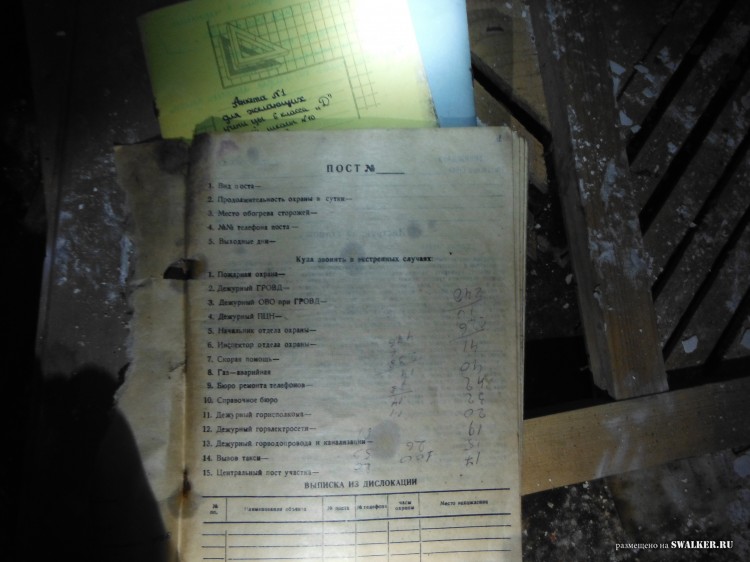 Анкета №1
для желающих
6 класса "Д"
школы №10
ПОСТ №
1. Вид поста—
2. Продолжительность охраны в сутки—
3. Место обогрева сторожей—
4. №№ телефона поста—
5. Выходные дни—
Куда звонить в экстренных случаях:
1. Пожарная охрана—
2. Дежурный ГРОВД—
3. Дежурный ОВО при ГРОВД—
4. Дежурный ПЦН—
5. Начальник отдела охраны—
6. Инспектор отдела охраны—
7. Скорая помощь—
8. Газ—аварийная
9. Бюро ремонта телефонов—
10. Справочное бюро
11. Дежурный горисполкома—
12. Дежурный горэлектросети—
13. Дежурный горводопровода и канализации—
14. Вызов такси—
15. Центральный пост участка—
248
41
40
32
20
19
17
26
11
ВЫПИСКА ИЗ ДИСЛОКАЦИИ
№ пп. Наименование объекта № поста № телефона часы охраны Место нахождения
размещено на SWALKER.RU